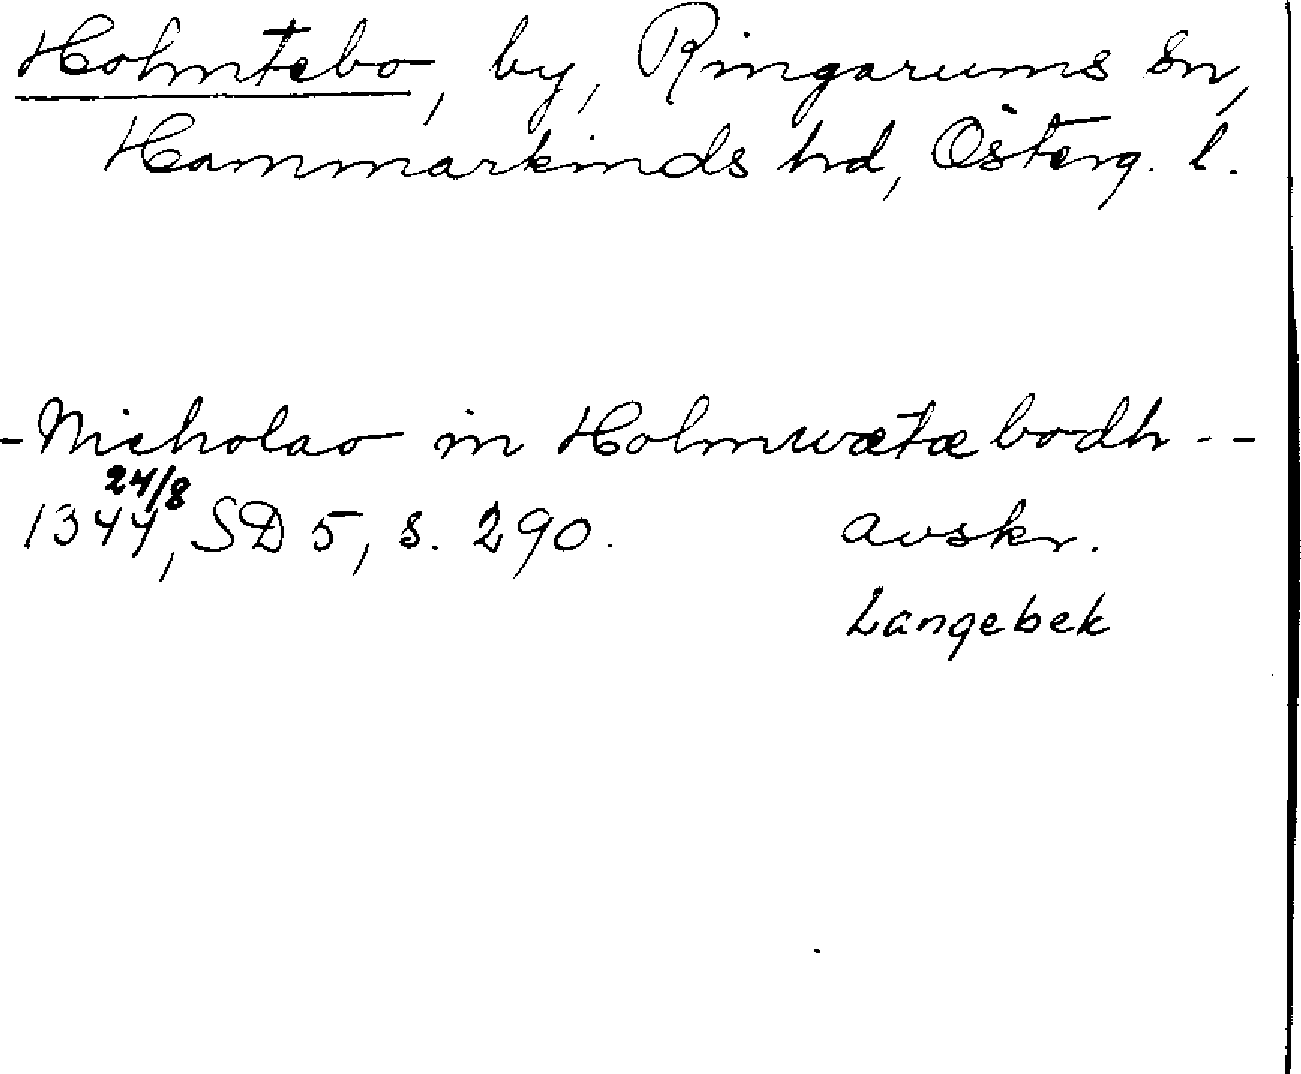 Holmtebo, by, Ringarums sn,
Hammarkinds hd, Österg. l.
-Nicholao in Holmwætæbodh --
24/8
1344, SD 5, s. 290. avskr.
Langebek